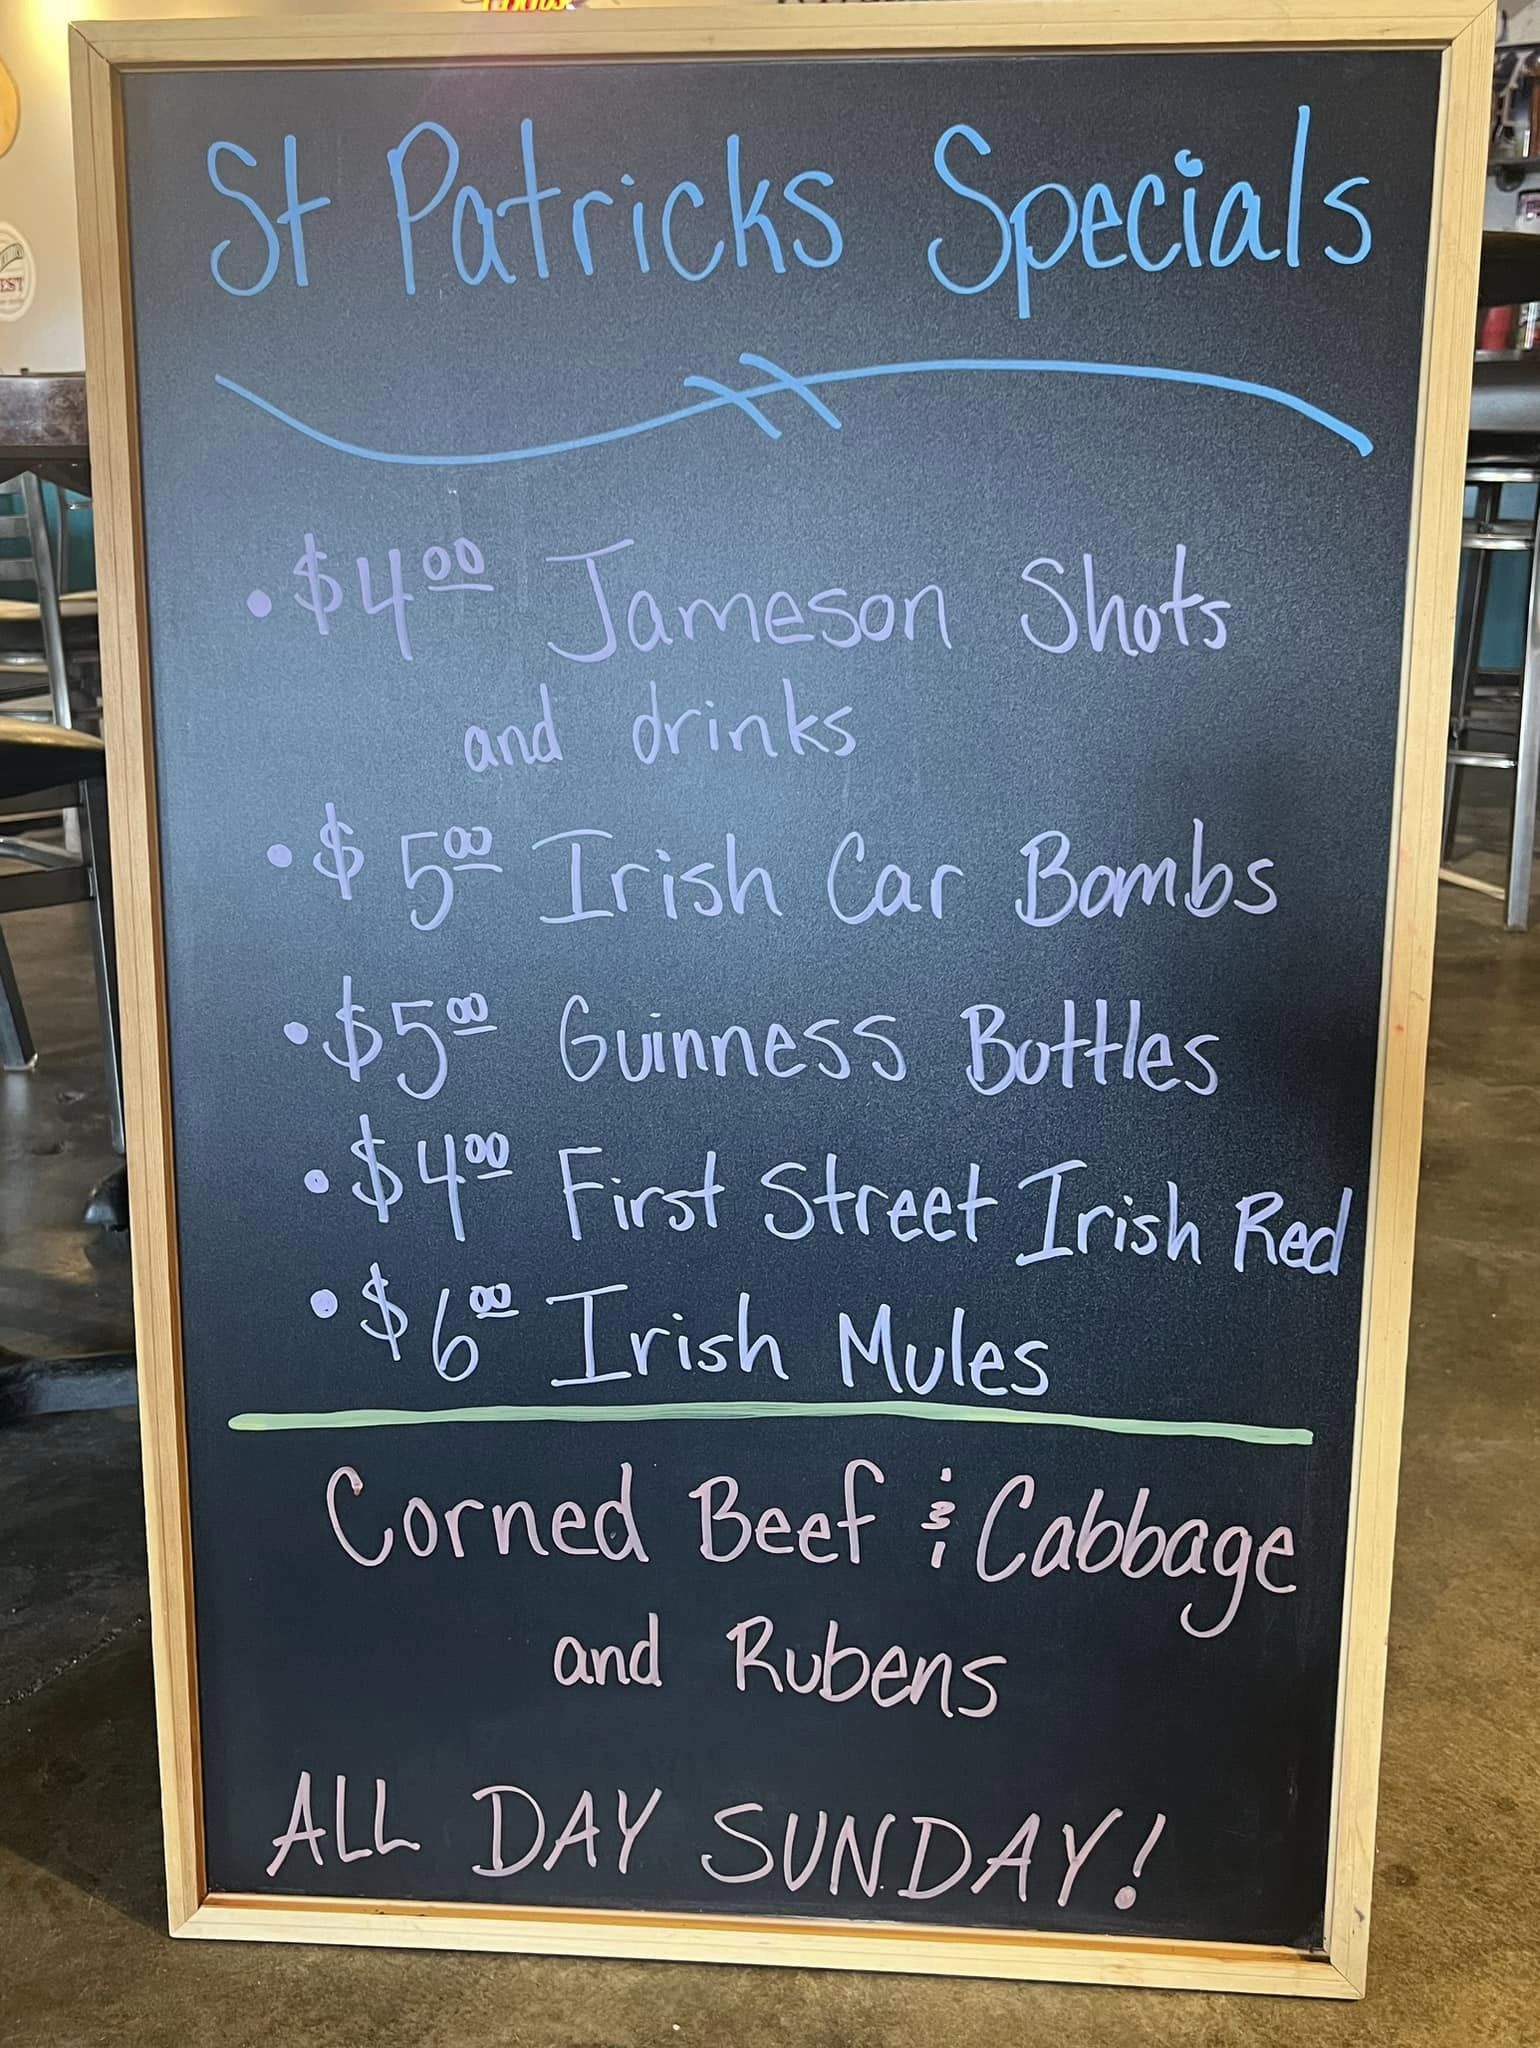 St Patricks Specials
• $4.00 Jameson Shots
and drinks
• $5.00 Irish Car Bombs
• $5.00 Guinness Bottles
• $4.00 First Street Irish Red
• $6.00 Irish Mules
Corned Beef & Cabbage
and Rubens
ALL DAY SUNDAY!
EST